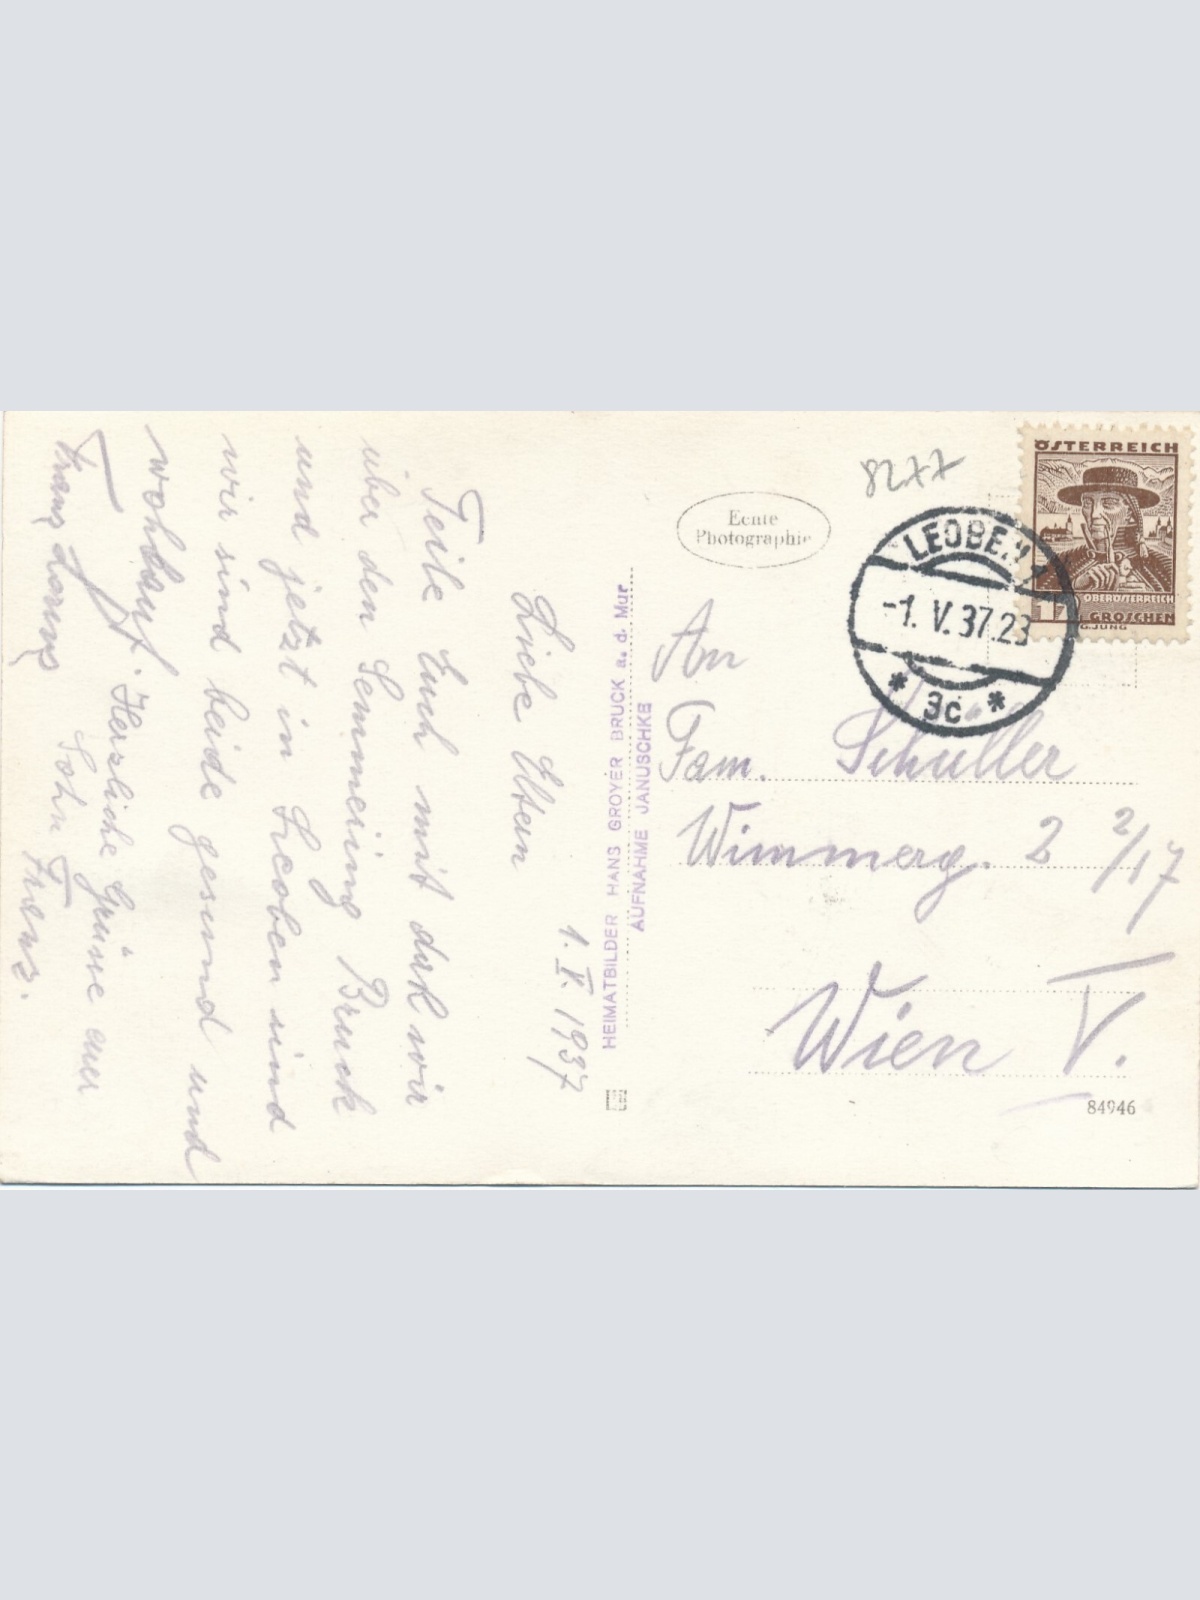 1. V. 1937
Liebe Eltern
Teile Euch mit daß wir
über den Semmering Bruck
und jetzt in Leoben sind
wir sind beide gesund und
wohlauf. Herzliche Grüsse euer
Sohn Franz.
Franz Lorenz
HEIMATBILDER HANS GROYER BRUCK a. d. Mur
AUFNAHME JANUSCHKE
Echte
Photographie
8277
ÖSTERREICH
OBERÖSTERREICH
GROSCHEN
G.JUNG
LEOBEN 1
-1. V. 37.23
* 3c *
An
Fam. Schuller
Wimmerg. 2 2/17
Wien V.
84946